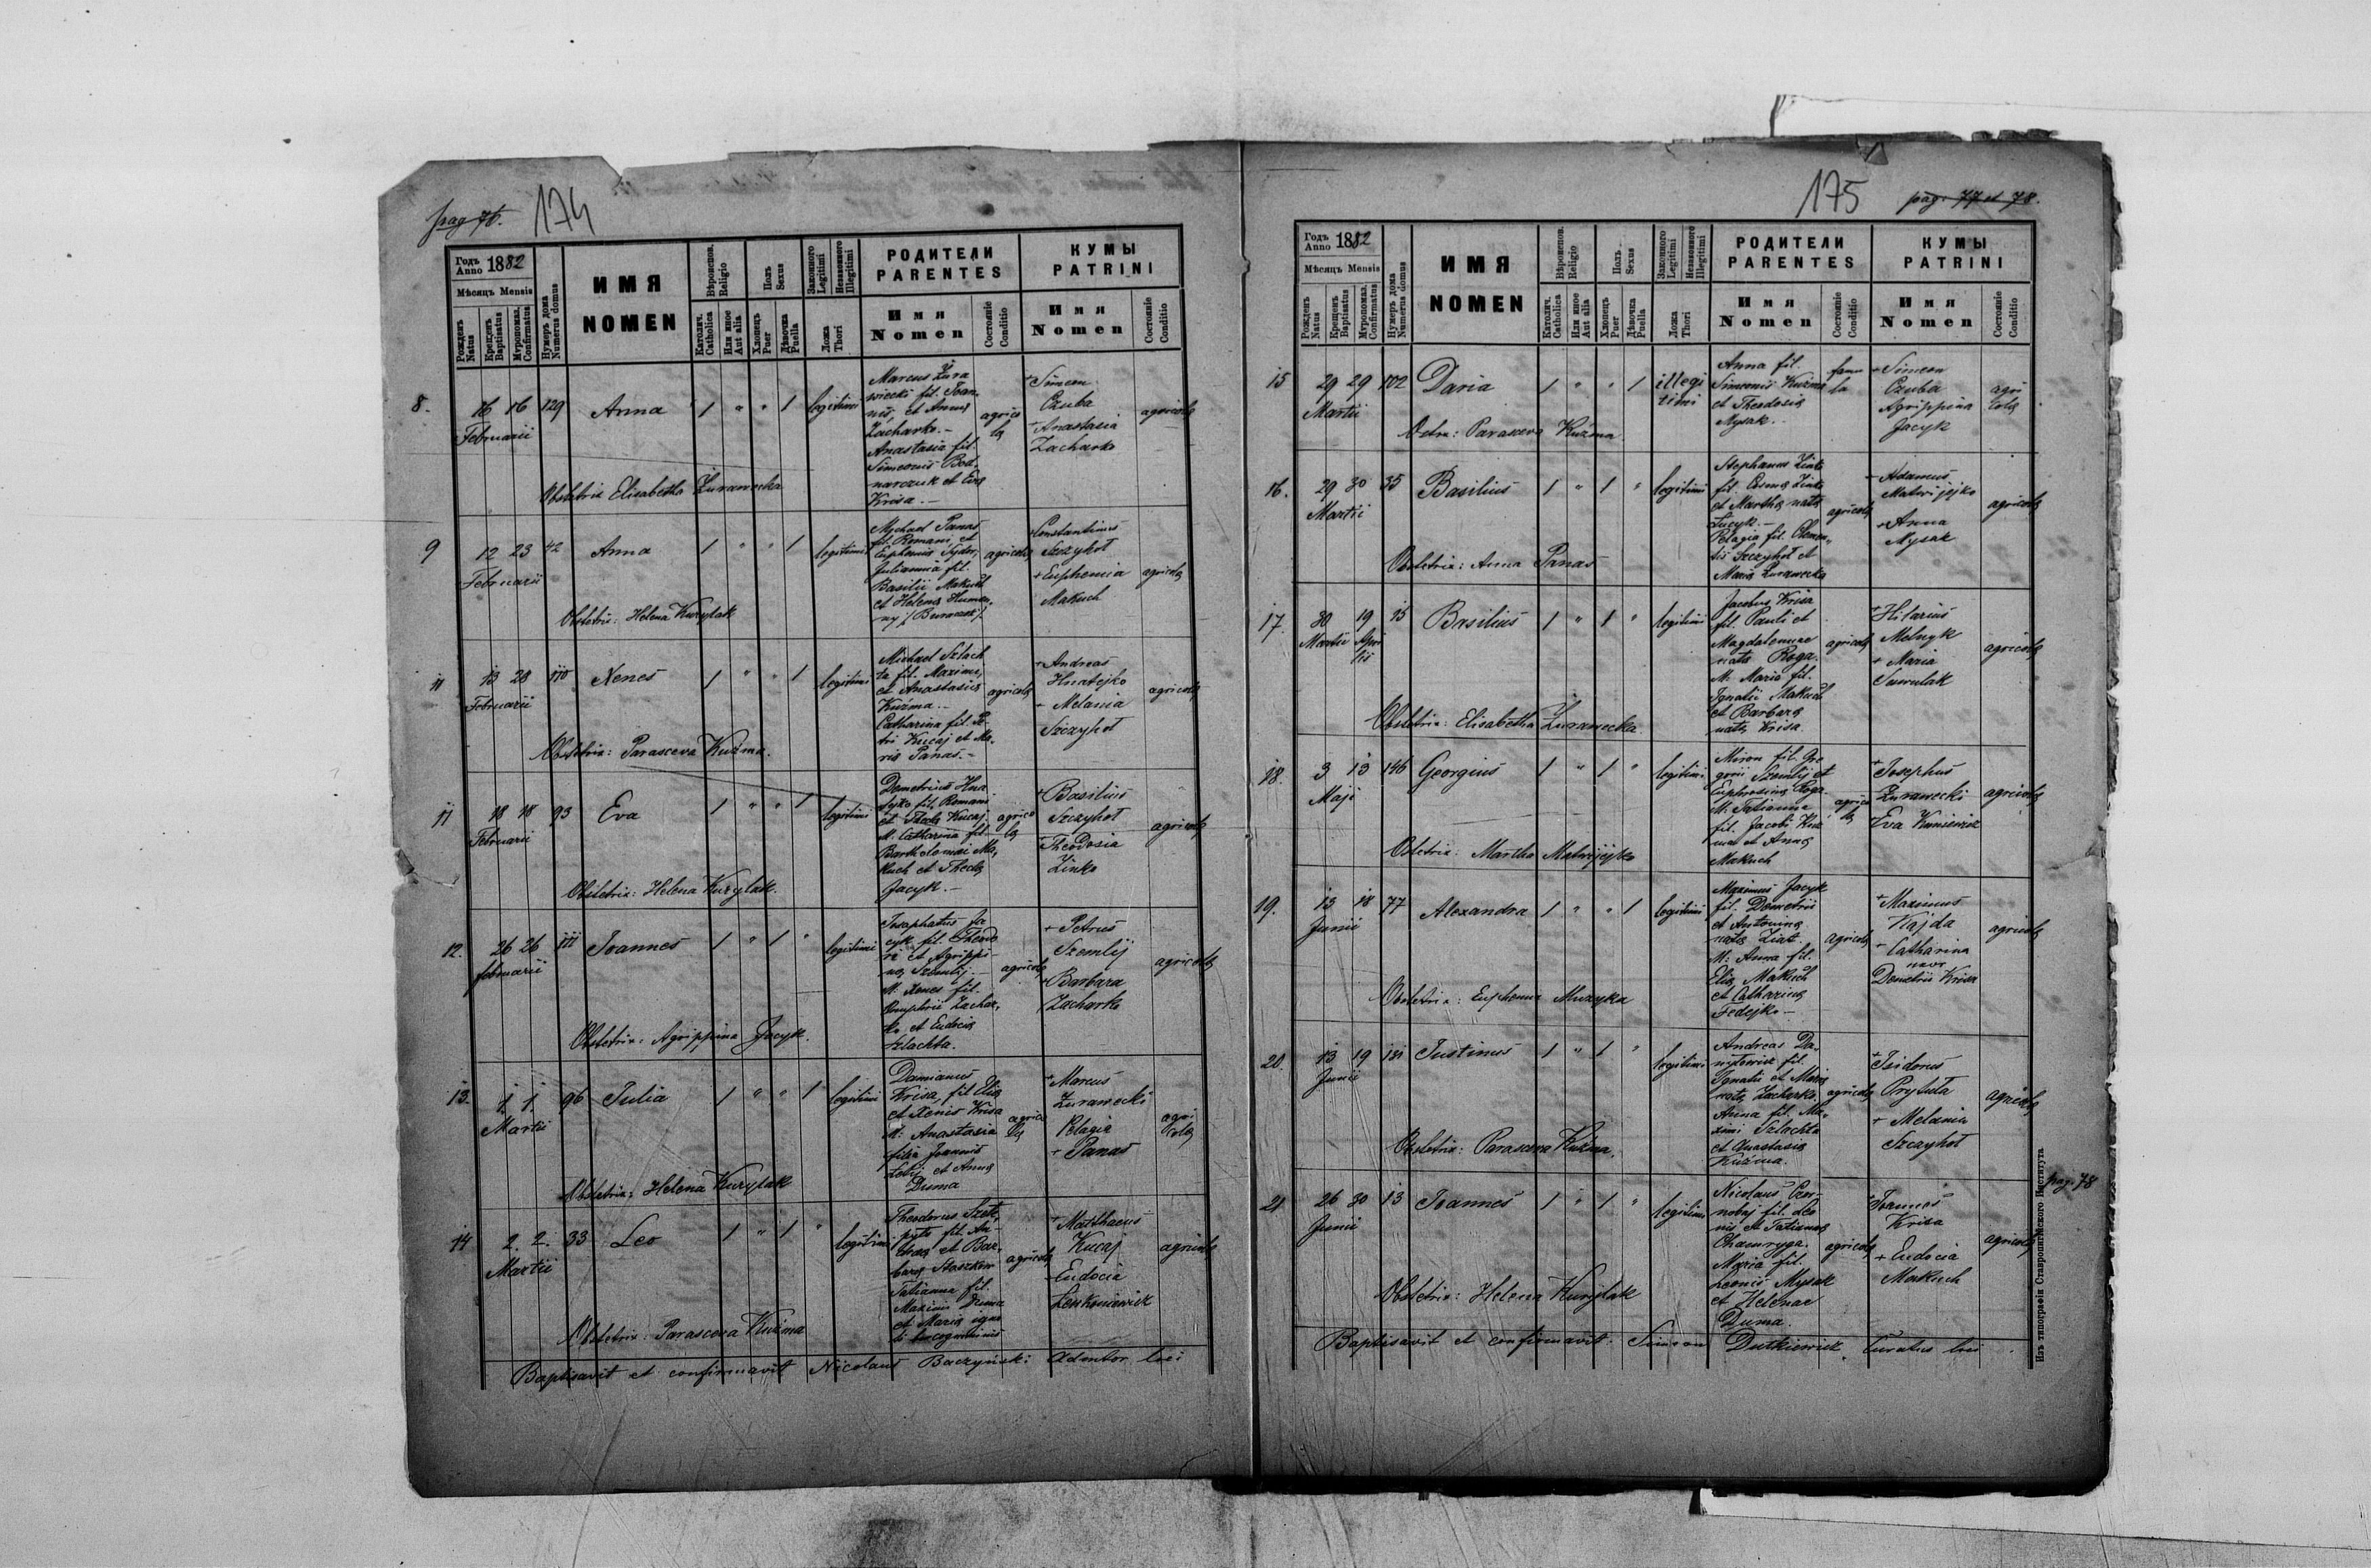 pag 76. 174
Годъ Anno 1882
Мѣсяцъ Mensis
Рожденъ Natus
Крещенъ Baptisatus
Мѵропомаз. Confirmatus
Нумеръ дома Numerus domus
ИМЯ
NOMEN
Вѣроиспов. Religio
Католич. Catholica
Или иное Aut alia
Полъ Sexus
Хлопецъ Puer
Дѣвочка Puella
Законного Legitimi
Незаконного Illegitimi
Ложа Thori
РОДИТЕЛИ
PARENTES
Имя
Nomen
Состояніе Conditio
КУМЫ
PATRINI
Имя
Nomen
Состояніе Conditio
8. 16 16 129 Anna 1 " " 1 legitimi
Februarii
Marcus Żura
wiecki fil. Joan
nis, et Annae
Zacharko.-
Anastasia fil.
Simeonis Bod
narczuk et Eva
Krisa.-
agrico
la
+ Simeon
Czuba
+ Anastasia
Zacharko
agricola
Obstetrix Elisabetha Żurawecka
9 12 23 42 Anna 1 " " 1 legitimi
Februarii
Michael Panas
fil. Romani, et
Euphemia Sydor,
Julianna fil.
Basilii Makuch
et Helena
agricola
Constantinus
Szczyhoł
+ Euphemia
Makuch
agricola
Obstetrix: Helena Kurylak
11 13 28 110 Xenes 1 " " 1 legitimi
Februarii
Michael Szlach
ta fil. Maximi,
et Anastasia
Kuźma.-
Catharina fil. Pe
tri Kucaj et Ma
ria Panas.-
agricola
+ Andreas
Hnatejko
- Melania
Szczyhoł
agricola
Obstetrix: Parasceva Kuźma.
11 18 18 93 Eva 1 " " 1 legitimi
Februarii
Demetrius Hna
tyko fil. Romani
et Thecla Kucaj.
M. Catharina fil.
Bartholomaei Ma
kuch et Thecla
Jacyk.-
agrico
la
+ Basilius
Szczyhoł
+ Theodosia
Zinko
agricola
Obstetrix: Helena Kurylak.
12. 26 26 111 Joannes 1 " 1 " legitimi
februarii
Josaphatus Ja
cyk fil. Theodo
ri et Agrippi
na Szemlij.-
M. Xenes fil.
Onuphrii Zachar
ko et Eudocia
Szlachta.
agricola
+ Petrus
Szemlij
+ Barbara
Zacharko
agricola
Obstetrix: Agrippina Jacyk.
13. 1 1 96 Julia 1 " " 1 legitimi
Martii
Damianus
Krisa, fil Elia
et Xenis Krisa
M: Anastasia
filia Joannis
et Anna
Duma
agrico
la
+ Marcus
Żurawecki
Pelagia
+ Panas
agri
cola
Obstetrix: Helena Kurylak
14 2. 2. 33 Leo 1 " 1 " legitimi
Martii
Theodorus
fil. An
dreae et Bar
bara Staszkow
Tatianna fil.
Maximi Duma
et Maria
agricola
+ Matthaeus
Kucaj
- Eudocia
Leszkoniewicz
agricola
Obstetrix: Parasceva Kuźma
Baptisavit et confirmavit Nicolaus Baczyński Admtor loci
175 pag. 77 et 78.
Годъ Anno 1882
Мѣсяцъ Mensis
Рожденъ Natus
Крещенъ Baptisatus
Мѵропомаз. Confirmatus
Нумеръ дома Numerus domus
ИМЯ
NOMEN
Вѣроиспов. Religio
Католич. Catholica
Или иное Aut alia
Полъ Sexus
Хлопецъ Puer
Дѣвочка Puella
Законного Legitimi
Незаконного Illegitimi
Ложа Thori
РОДИТЕЛИ
PARENTES
Имя
Nomen
Состояніе Conditio
КУМЫ
PATRINI
Имя
Nomen
Состояніе Conditio
15 29 29 102 Daria 1 " " 1 illegi
timi
Martii
Anna fil.
Simeonis Kuźma
et Theodosia
Mysak.
famu
la
+ Simeon
Czuba
Agrippina
Jacyk
agri
cola
Obstr: Parasceva Kuźma
16. 29 30 35 Basilius 1 " 1 " legitimi
Martii
Stephanus Zinko
fil. Cosma Zinko
et Martha nata
Jacyk.-
Pelagia fil. Clemen
tis Szczyhoł et
Maria Żurawecka
agricola
- Adamus
Matwijejko
+ Anna
Mysak
agricola
Obstetrix: Anna Panas
17. 30 19 15 Basilius 1 " 1 " legitimi
Martii Apri
lis
Jacobus Krisa
fil. Pauli et
Magdalenae
nata Roga.
M: Maria fil.
Ignatii Makuch
et Barbara
nata Krisa.
agricola
+ Hilarius
Melnyk
+ Maria
agricola
Obstetrix: Elisabetha Żurawecka
18. 3 13 146 Georgius 1 " 1 " legitimi
Maji
Miron fil. Gre
gorii Szemlij et
Euphrosina Roga.
M: Tatianna
fil. Jacobi Kuź
ma et Anna
Makuch
agrico
la
+ Josephus
Żurawecki
Eva Kuniewicz
agricola
Obstetrix: Martha Matwijejko
19. 13 18 77 Alexandra 1 " " 1 legitimi
Junii
Maximus Jacyk
fil. Demetrii
et Antonina
nata Ziat.
M: Anna fil.
Elia Makuch
et Catharina
Fedejko-
agricola
+ Maximus
Kajda
+ Catharina
uxor
Demetrii Krisa
agricola
Obstetrix: Euphemia Muzyka
20. 13 19 131 Justinus 1 " 1 " legitimi
Junii
Andreas Da
nyłewicz fil.
Ignatii et Maria
nata Zacharko.
Anna fil. Ma
ximi Szlachta
et Anastasia
Kuźma.
agricola
+ Isidorus
Prytuła
+ Melania
Szczyhoł
agricola
Obstetrix: Parasceva Kuźma.
21 26 30 13 Joannes 1 " 1 " legitimi
Junii
Nicolaus Czor
nobaj fil. Leo
nis et Tatianna
Chamryga.
Maria fil.
Leonis Mysak
et Helenae
Duma.
agricola
+ Joannes
Krisa
+ Eudocia
Makuch
agricola
pag. 78
Obstetrix: Helena Kurylak
Baptisavit et confirmavit Simeon Dutkiewicz Curatus loci
Изъ типографіи Ставропигійского Института